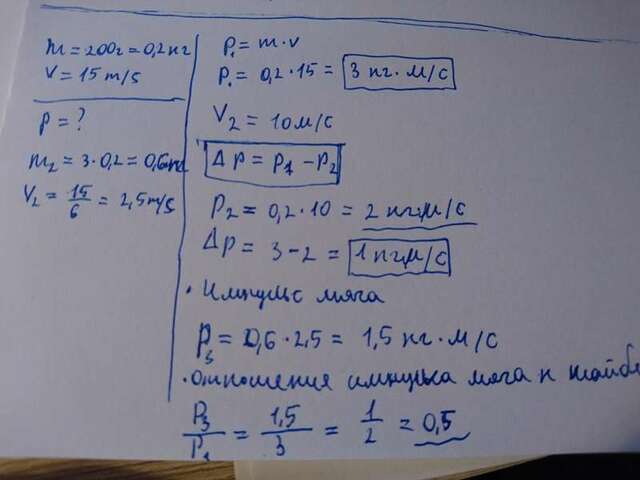 m = 200г = 0,2 кг
V = 15 m/s
P = ?
m₂ = 3·0,2 = 0,6 кг
V₂ = 15/6 = 2,5 m/s
P₁ = m·v
P₁ = 0,2·15 = 3 кг·м/с
V₂ = 10 м/с
Δp = P1 - P2
P₂ = 0,2·10 = 2 кг·м/с
Δp = 3 - 2 = 1 кг·м/с
• Импульс мяча
P₃ = 0,6·2,5 = 1,5 кг·м/с
• отношения импульса мяча к шайбе
P₃/P₁ = 1,5/3 = 1/2 = 0,5